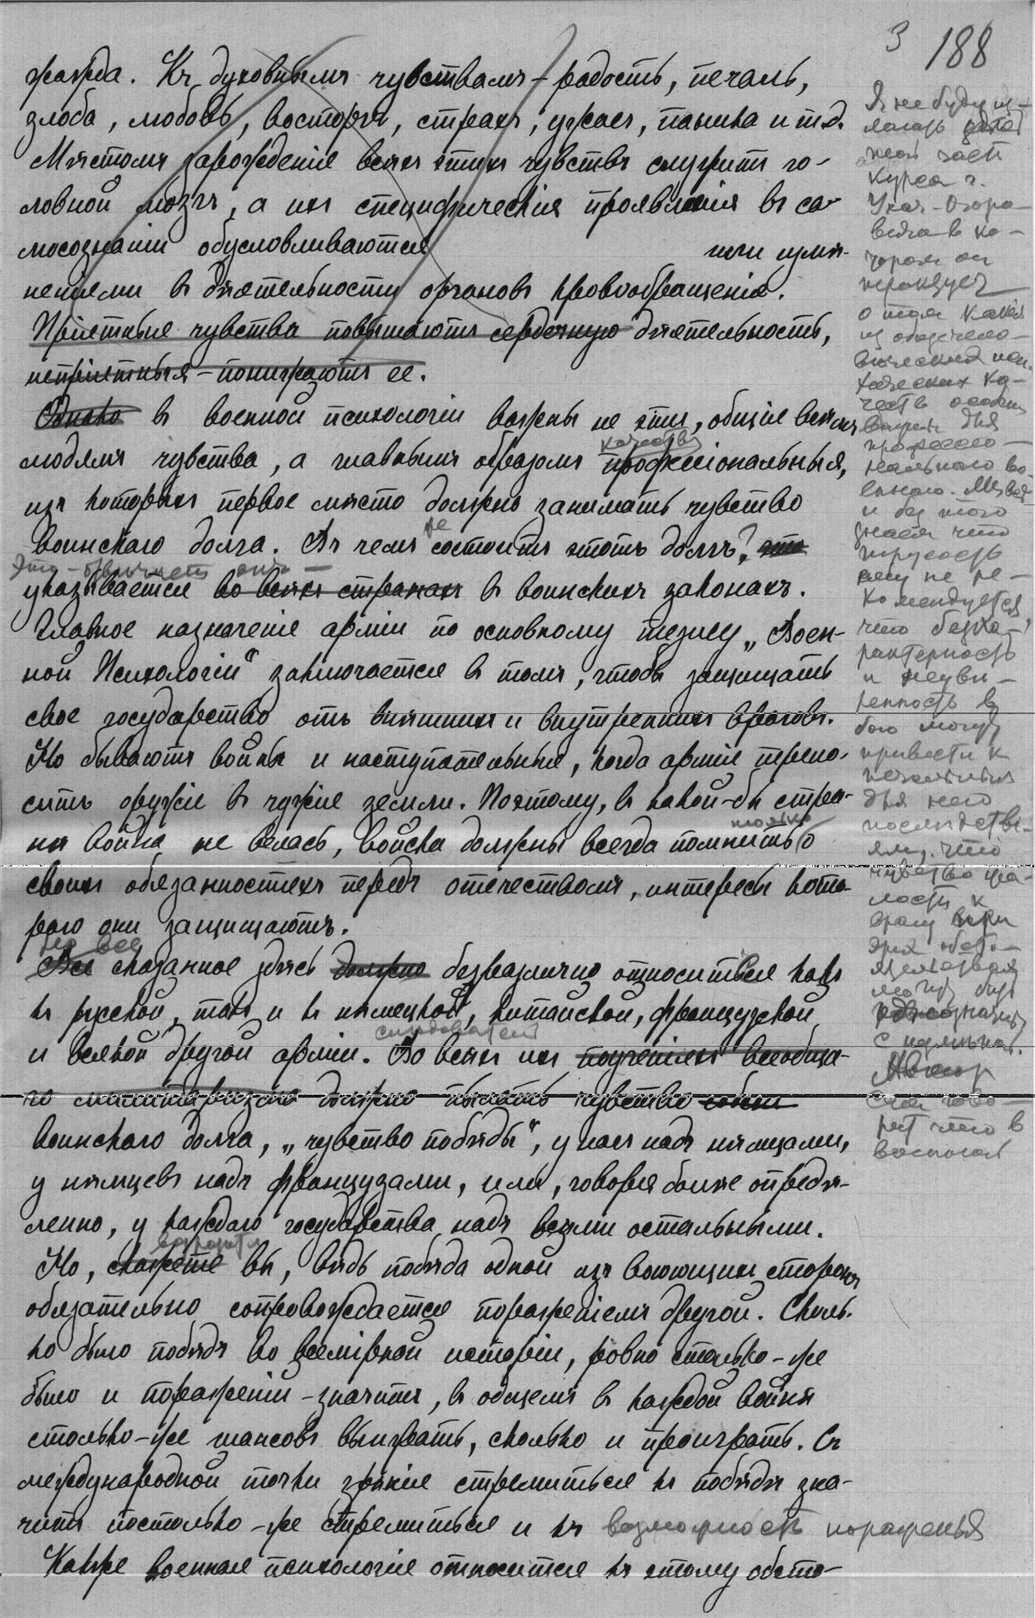 3 188
жажда. Къ духовнымъ чувствамъ – радость, печаль,
злоба, любовь, восторгъ, страхъ, ужасъ, паника и т.д.
Мѣстомъ зарожденія всѣхъ этихъ чувствъ служитъ го-
ловной мозгъ, а ихъ специфическія проявленія въ са-
мосознаніи обусловливаются
ненiями въ дѣятельности органовъ кровообращенія.
Пріятныя чувства повышаютъ сердечную дѣятельность,
непріятныя – понижаютъ ее.
Однако въ военной психологіи важны не эти, общіе всѣмъ
качества
людямъ чувства, а главнымъ образомъ профессіональныя,
изъ которыхъ первое мѣсто должно занимать чувство
же
воинскаго долга. Въ чемъ состоитъ этотъ долгъ? это
Это – отвѣчаетъ онъ –
указывается во всѣхъ странахъ въ воинскихъ законахъ.
Главное назначеніе арміи по основному тезису „Воен-
ной Психологіи" заключается въ томъ, чтобы защищать
свое государство отъ внѣшнихъ и внутреннихъ враговъ.
Но бываютъ войны и наступательныя, когда армія перено-
ситъ оружіе въ чужіе земли. Поэтому, въ какой-бы стра-
только
нѣ война не велась, войска должны всегда помнить о
своихъ обязанностяхъ передъ отечествомъ, интересы кото-
раго они защищаютъ.
Но все
Все сказанное здѣсь должно безразлично относиться какъ
къ русской, такъ и къ нѣмецкой, китайской, французской
и всякой другой арміи. Во всѣхъ ихъ
го милитаризма должно пылать чувство
воинскаго долга, „чувство побѣды", у насъ надъ нѣмцами,
у нѣмцевъ надъ французами, или, говоря болѣе опредѣ-
ленно, у каждаго государства надъ всѣми остальными.
возразите
Но, скажете вы, вѣдь побѣда одной изъ воюющихъ сторонъ
обязательно сопровождается пораженіемъ другой. Сколь-
ко было побѣдъ во всемірной исторіи, ровно столько-же
было и пораженій – значитъ, въ общемъ въ каждой войнѣ
столько-же шансовъ выиграть, сколько и проиграть. Съ
международной точки зрѣнія стремиться къ побѣдѣ зна-
читъ постольку-же стремиться и къ возможность пораженья
Какже военная психологія относится къ этому обсто-
Я не буду из-
лагать
ной части
курса г.
Укач-Огоро-
вича в ко-
тором он
о том какія
из общечело-
вѣческих пси-
хических ка-
честв особенно
важны для
профессио-
нального во-
еннаго. Мы все
и без того
знаем что
трусость
ему не ре-
комендуется,
что безха-
рактерность
и неуве-
ренность в
бою могут
привести к
для него
последстви-
ям, что
чувство жа-
лости к
врагу
Автор
рит чего в